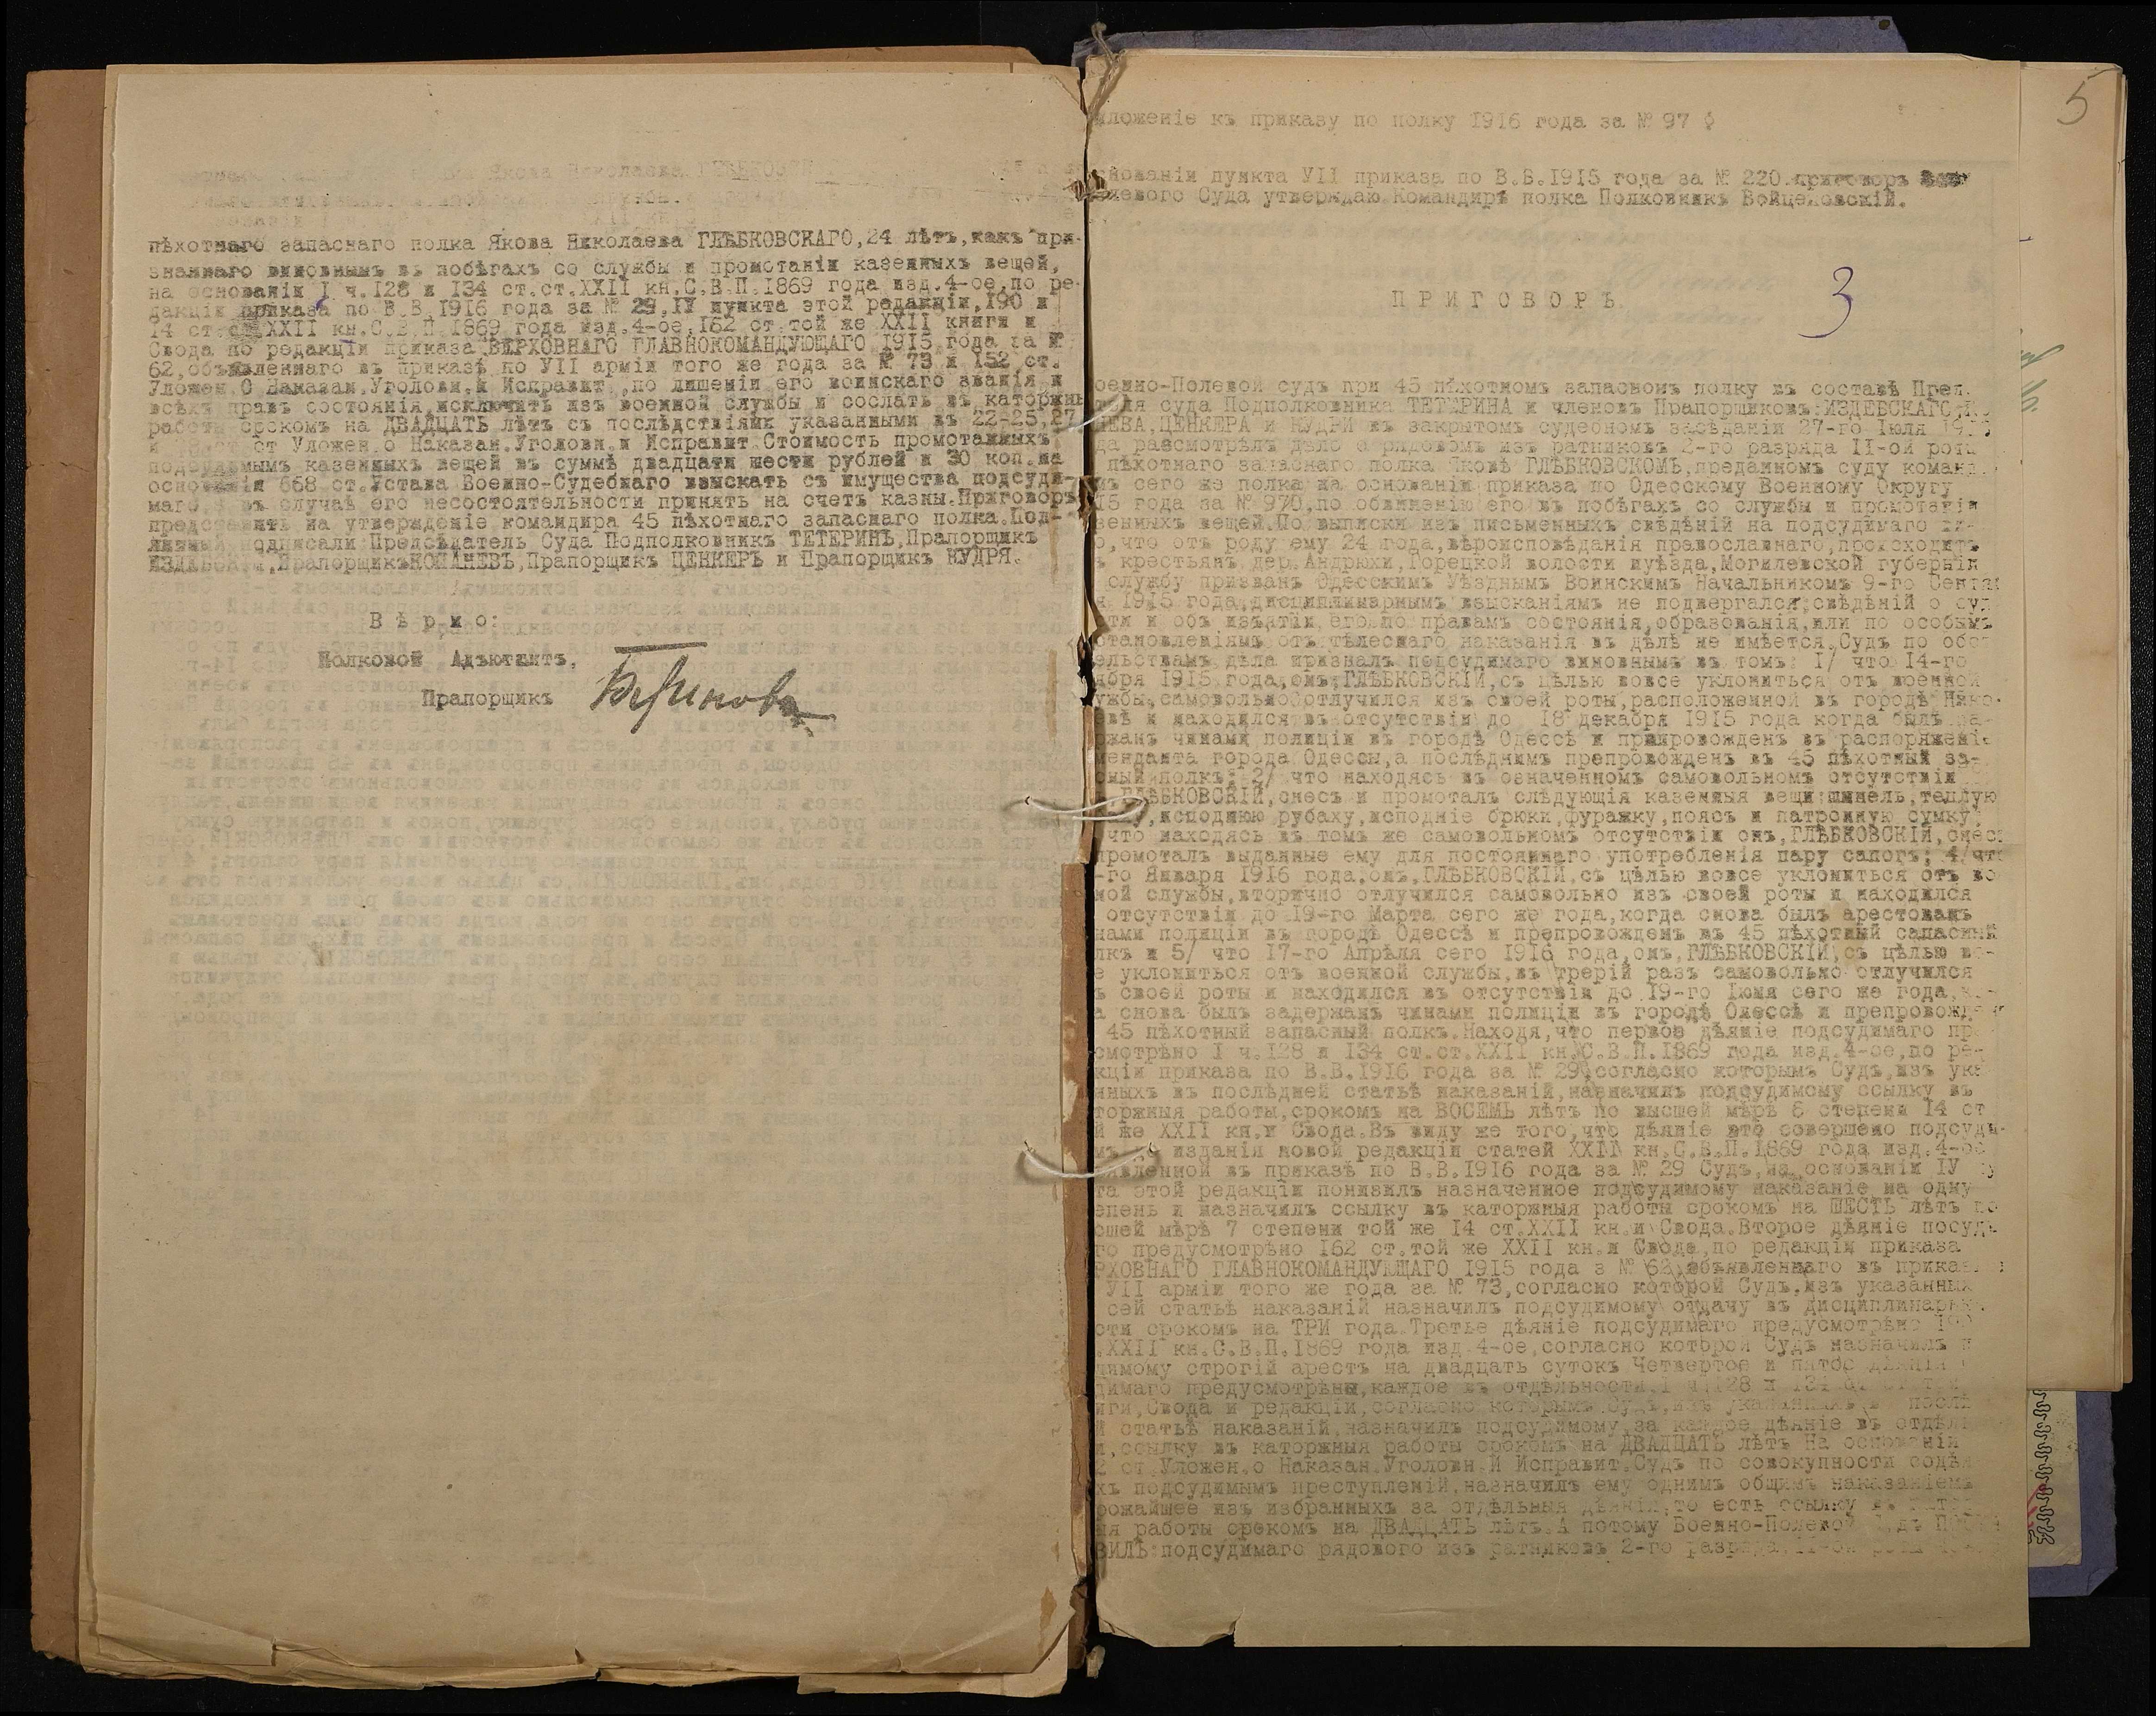 пѣхотнаго запаснаго полка Якова Николаева ГЛѢБКОВСКАГО, 24 лѣтъ, какъ при-
знаннаго виновнымъ въ побѣгахъ со службы и промотаніи казенныхъ вещей,
на основаніи I ч. 128 и 134 ст.ст. XXII кн. С.В.П. 1869 года изд. 4-ое, по ре-
дакціи приказа по В.В. 1916 года за № 29, IУ пункта этой редакціи, 190 и
14 ст. XXII кн. С.В.П. 1869 года изд. 4-ое, 162 ст. той же XXII книги и
Свода по редакціи приказа ВЕРХОВНАГО ГЛАВНОКОМАНДУЮЩАГО 1915 года за №
62, объявленнаго въ приказѣ по УII арміи того же года за № 73 и 152 ст.
Уложен. О Наказан. Уголовн. и Исправит., по лишеніи его воинскаго званія и
всѣхъ правъ состоянія, исключить изъ военной службы и сослать въ каторжны
работы срокомъ на ДВАДЦАТЬ лѣтъ съ послѣдствіями указанными въ 22-25, 27
и ст Уложен. о Наказан. Уголовн. и Исправит. Стоимость промотанныхъ
подсудимымъ казенныхъ вещей въ суммѣ двадцати шести рублей и 30 коп. на
основаніи 668 ст. Устава Военно-Судебнаго взыскать съ имущества подсуди-
маго, въ случаѣ его несостоятельности принять на счетъ казны. Приговоръ
представить на утвержденіе командира 45 пѣхотнаго запаснаго полка. Под-
линный подписали: Предсѣдатель Суда Подполковникъ ТЕТЕРИНЪ, Прапорщикъ
ИЗДЕБСКІЙ, Прапорщикъ КОПАНЕВЪ, Прапорщикъ ЦЕНКЕРЪ и Прапорщикъ КУДРЯ.
Вѣрно:
Полковой Адъютантъ,
Прапорщикъ
5
иложеніе къ приказу по полку 1916 года за № 97
нованіи пункта УII приказа по В.В. 1915 года за № 220. приговоръ Воен
олевого Суда утверждаю. Командиръ полка Полковникъ Войцеховскій.
3
ПРИГОВОРЪ.
оенно-Полевой судъ при 45 пѣхотномъ запасномъ полку въ составѣ Пред.
теля суда Подполковника ТЕТЕРИНА и членовъ Прапорщиковъ: ИЗДЕБСКАГО, К
НЕВА, ЦЕНКЕРА и КУДРИ въ закрытомъ судебномъ засѣданіи 27-го Іюля 19
да разсмотрѣлъ дѣло о рядовомъ изъ ратниковъ 2-го разряда 11-ой роты
пѣхотнаго запаснаго полка Яковѣ ГЛѢБКОВСКОМЪ, преданномъ суду коман
мъ сего же полка на основаніи приказа по Одесскому Военному Округу
15 года за № 970, по обвиненію его въ побѣгахъ со службы и промотаніи
зенныхъ вещей. По выписки изъ письменныхъ свѣдѣній на подсудимаго ви-
о, что отъ роду ему 24 года, вѣроисповѣданія православнаго, происходитъ
ъ крестьянъ дер. Андрюхи, Горецкой волости иуѣзда, Могилевской губерніи
службу призванъ Одесскимъ Уѣзднымъ Воинскимъ Начальникомъ 9-го Сентя
я 1915 года, дисциплинарнымъ взысканіямъ не подвергался, свѣдѣній о суд
сти и объ изъятіи его по правамъ состоянія, образованія, или по особымъ
становленіямъ отъ тѣлеснаго наказанія въ дѣлѣ не имѣется. Судъ по обст
ельствамъ дѣла призналъ подсудимаго виновнымъ въ томъ: 1/ что 14-го
ября 1915 года, онъ, ГЛѢБКОВСКІЙ, съ цѣлью вовсе уклониться отъ военной
ужбы, самовольно отлучился изъ своей роты, расположенной въ городѣ Нико-
евѣ и находился въ отсутствіи до 18 декабря 1915 года когда былъ за-
ржанъ чинами полиціи въ городѣ Одессѣ и препровожденъ въ распоряженіе
менданта города Одессы, а послѣднимъ препровожденъ въ 45 пѣхотный за-
сный полкъ; 2/ что находясь въ означенномъ самовольномъ отсутствіи
ГЛѢБКОВСКІЙ, снесъ и промоталъ слѣдующія казенныя вещи: шинель, теплую
ку, исподнюю рубаху, исподніе брюки, фуражку, поясъ и патронную сумку;
что находясь въ томъ же самовольномъ отсутствіи онъ, ГЛѢБКОВСКІЙ, снесъ
промоталъ выданные ему для постояннаго употребленія пару сапогъ; 4/ что
-го Января 1916 года, онъ, ГЛѢБКОВСКІЙ, съ цѣлью вовсе уклониться отъ во
ной службы, вторично отлучился самовольно изъ своей роты и находился
отсутствіи до 19-го Марта сего же года, когда снова былъ арестованъ
нами полиціи въ городѣ Одессѣ и препровожденъ въ 45 пѣхотный сапасный
лкъ и 5/ что 17-го Апрѣля сего 1916 года, онъ, ГЛѢБКОВСКІЙ, съ цѣлью во-
е уклониться отъ военной службы, въ трерій разъ самовольно отлучился
ъ своей роты и находился въ отсутствіи до 19-го Іюня сего же года,
а снова былъ задержанъ чинами полиціи въ городѣ Одессѣ и препровожден
45 пѣхотный запасный полкъ. Находя, что первое дѣяніе подсудимаго пр
смотрѣно I ч. 128 и 134 ст.ст. XXII кн. С.В.П. 1869 года изд. 4-ое, по ре-
кціи приказа по В.В. 1916 года за № 29, согласно которымъ Судъ, изъ ука
нныхъ въ послѣдней статьѣ наказаній, назначилъ подсудимому ссылку въ
торжныя работы, срокомъ на ВОСЕМЬ лѣтъ по высшей мѣрѣ 6 степени 14 ст
й же XXII кн. и Свода. Въ виду же того, что дѣяніе это совершено подсуди-
мъ до изданія новой редакціи статей XXII кн. С.В.П. 1869 года изд. 4-ое
явленной въ приказѣ по В.В. 1916 года за № 29 Судъ, на основаніи IУ
та этой редакціи понизилъ назначенное подсудимому наказаніе на одну
епень и назначилъ ссылку въ каторжныя работы срокомъ на ШЕСТЬ лѣтъ по
сшей мѣрѣ 7 степени той же 14 ст. XXII кн. и Свода. Второе дѣяніе посуди
го предусмотрѣно 162 ст. той же XXII кн. и Свода, по редакціи приказа
РХОВНАГО ГЛАВНОКОМАНДУЮЩАГО 1915 года з № 62, объявленнаго въ приказ
УII арміи того же года за № 73, согласно которой Судъ, изъ указанныхъ
сей статьѣ наказаній назначилъ подсудимому отдачу въ дисциплинарн
сти срокомъ на ТРИ года. Третье дѣяніе подсудимаго предусмотрѣно
.XXII кн. С.В.П. 1869 года изд. 4-ое, согласно которой Судъ назначилъ п
димому строгій арестъ на двадцать сутокъ Четвертое и пятое дѣянія
димаго предусмотрѣны, каждое въ отдѣльности, I ч. 128 и 134
иги, Свода и редакціи, согласно которымъ Судъ, изъ указанныхъ въ послѣ
й статьѣ наказаній, назначилъ подсудимому, за каждое дѣяніе въ отдѣл
и, ссылку въ каторжныя работы срокомъ на ДВАДЦАТЬ лѣтъ На основаніи
ст. Уложен. о Наказан. Уголовн. И Исправит. Судъ по совокупности содѣя
хъ подсудимымъ преступленій, назначилъ ему однимъ общимъ наказаніемъ
рожайшее изъ избранныхъ за отдѣльныя дѣянія, то есть ссылку въ катор
ыя работы срокомъ на ДВАДЦАТЬ лѣтъ. А потому Военно-Полевой Судъ ПО
ВИЛЪ: подсудимаго рядового изъ ратниковъ 2-го разряда 11-ой роты